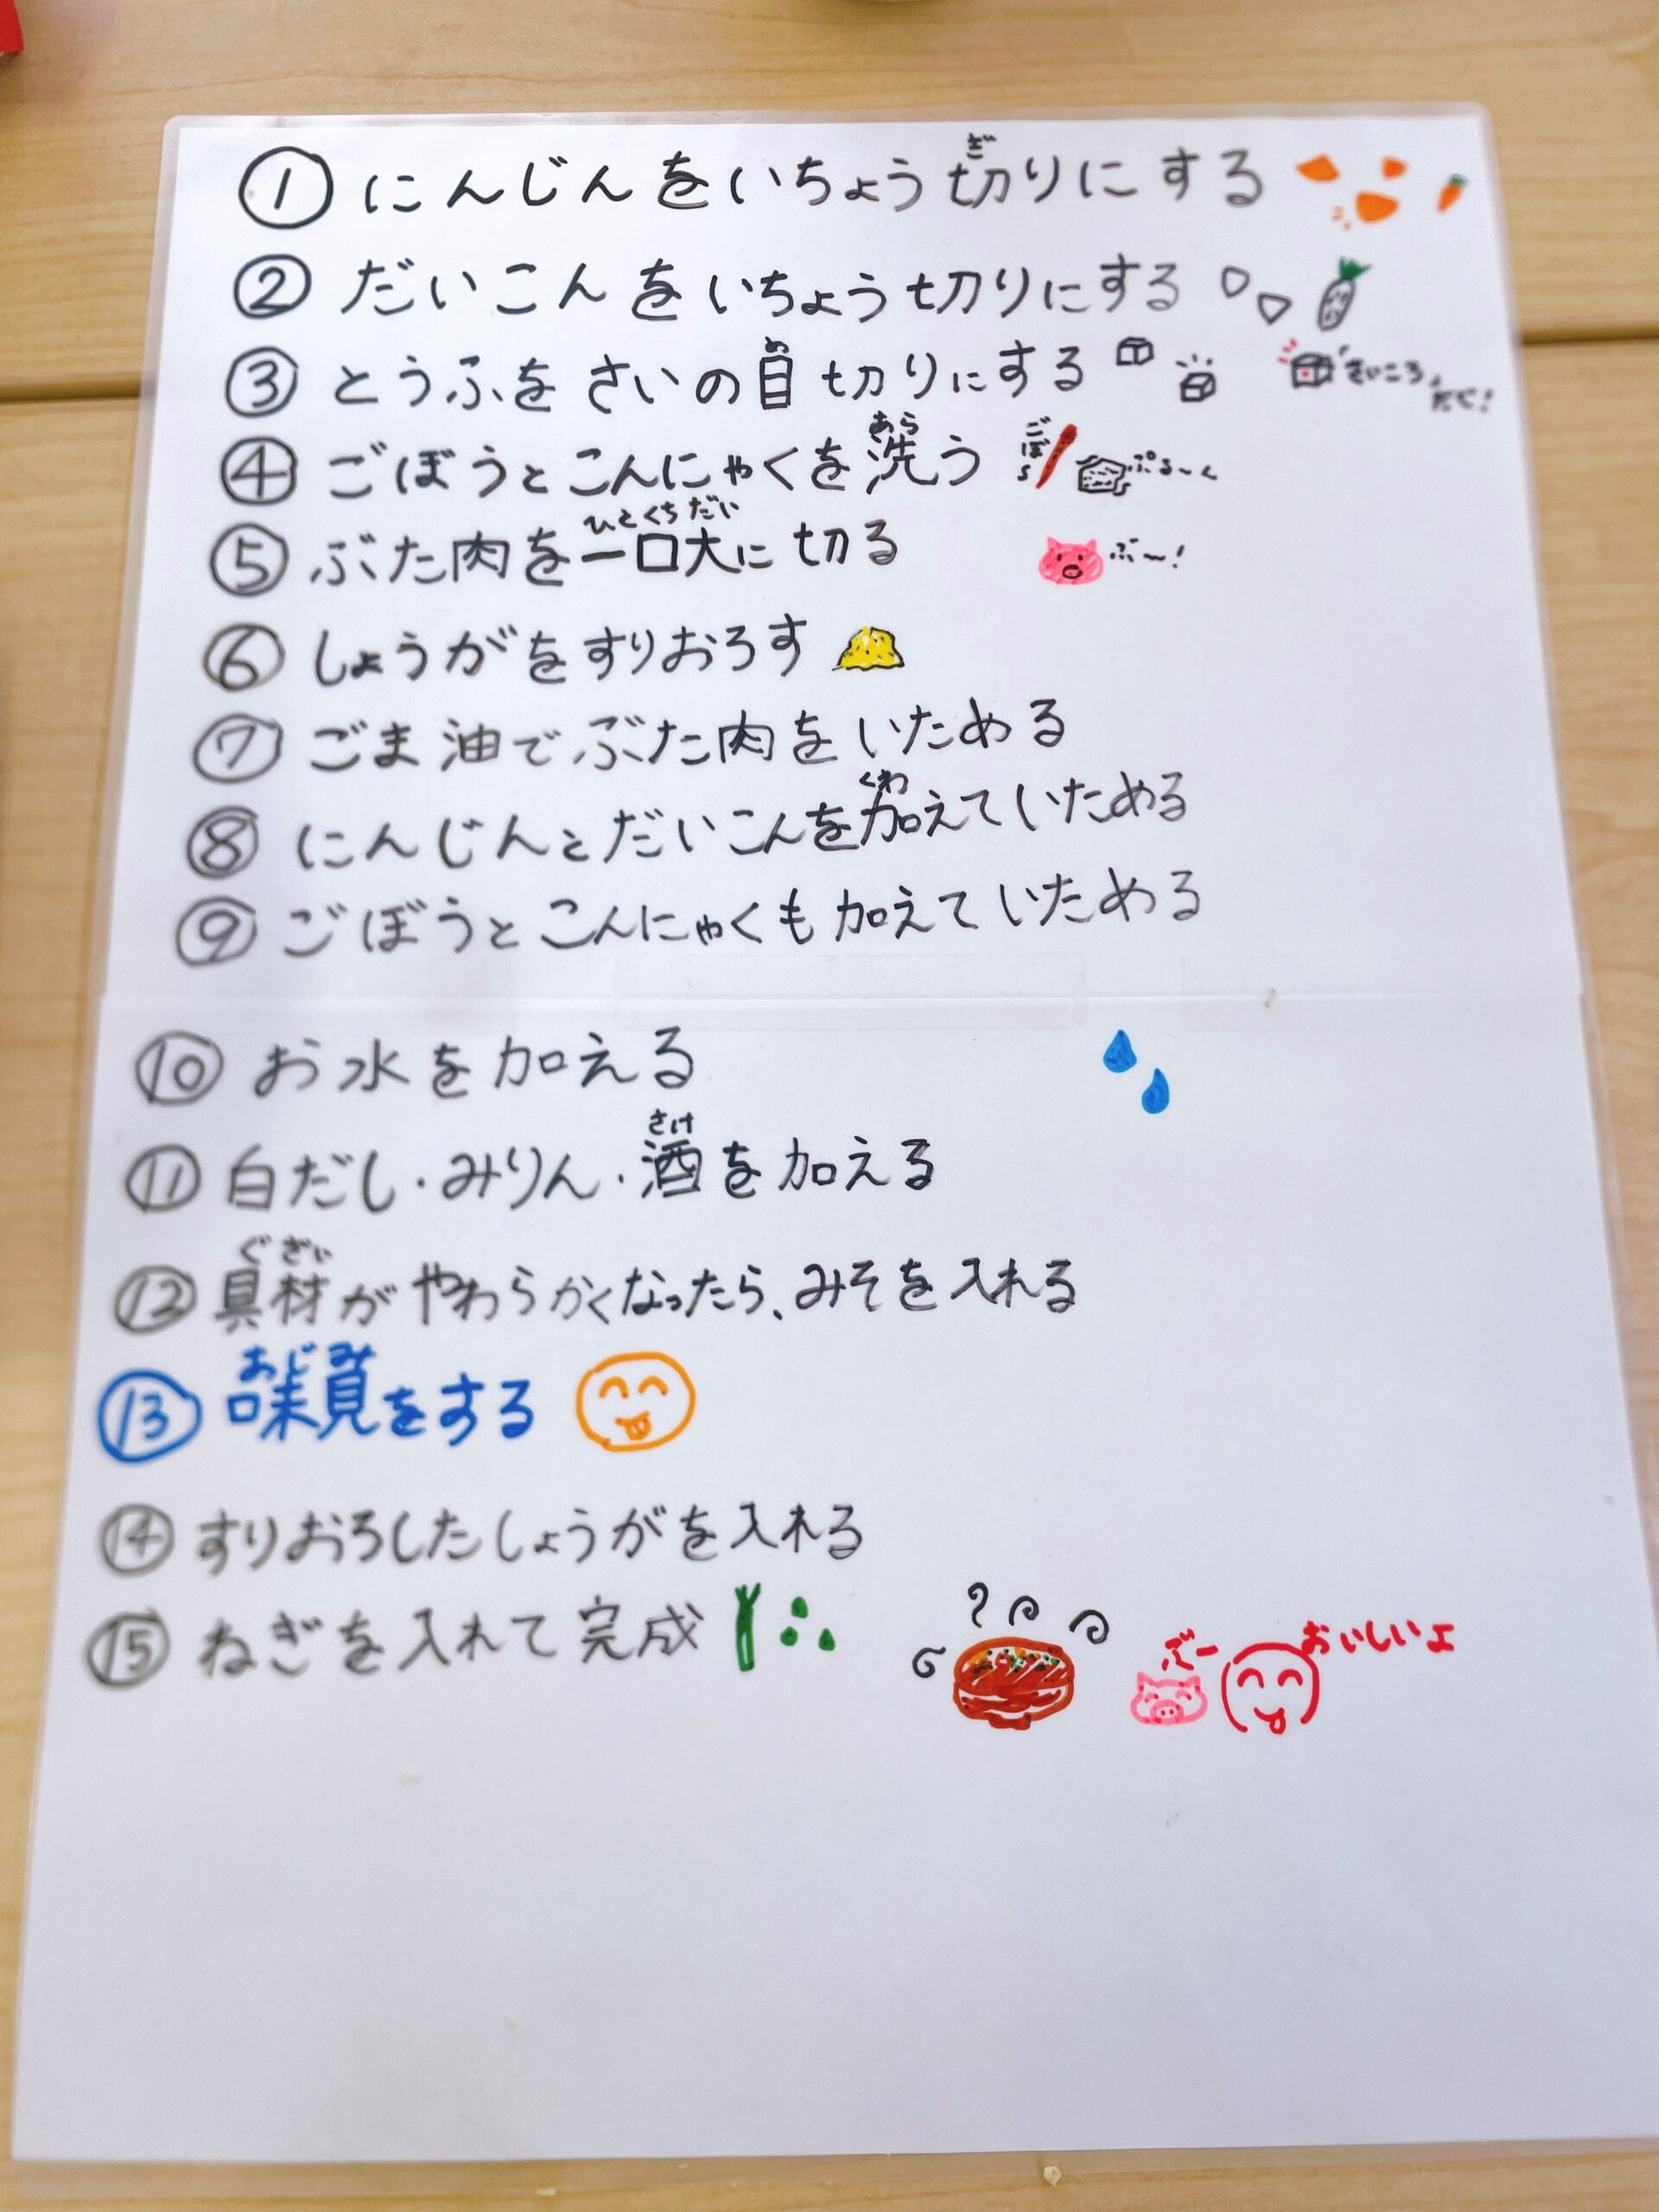 ① にんじんをいちょう切りにする
ぎ
② だいこんをいちょう切りにする
③ とうふをさいの目切りにする
め
さいころだぐ!
④ ごぼうとこんにゃくを洗う
あら
ごぼう
ぷる〜ん
⑤ ぶた肉を一口大に切る
ひとくちだい
ぶ〜!
⑥ しょうがをすりおろす
⑦ ごま油でぶた肉をいためる
⑧ にんじんとだいこんを加えていためる
くわ
⑨ ごぼうとこんにゃくも加えていためる
⑩ お水を加える
⑪ 白だし・みりん・酒を加える
さけ
⑫ 具材がやわらかくなったら、みそを入れる
ぐざい
⑬ 味見をする
あじみ
⑭ すりおろしたしょうがを入れる
⑮ ねぎを入れて完成
ぶー
おいしいよ